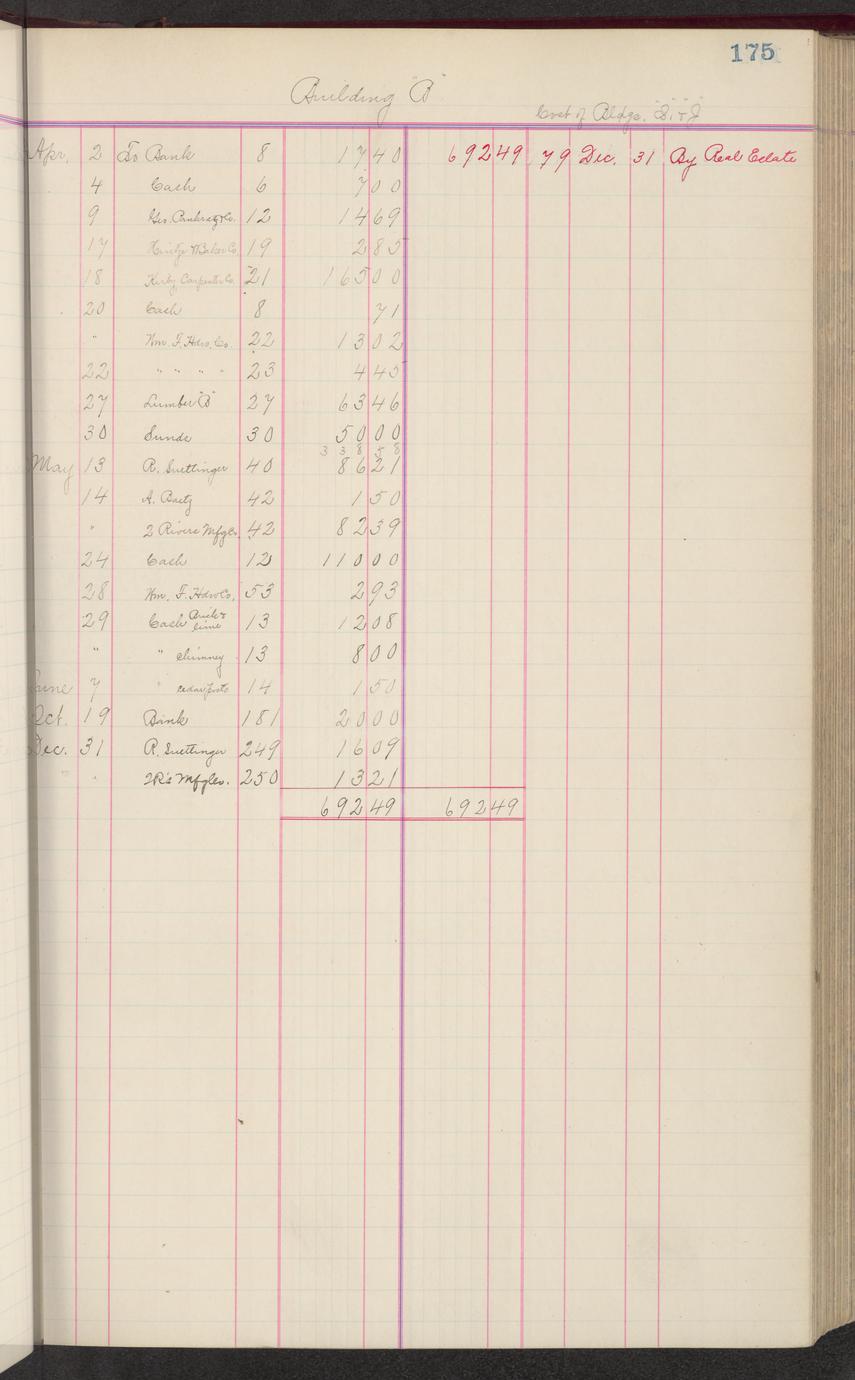 175
Building "B"
Cost of Bldgs.
Apr. 2 To Bank 8 17 40 692 49 79 Dec. 31 By Real Estate
4 Cash 6 7 00
9 Geo. Co. 12 14 69
17 Baker Co. 19 2 85
18 Kirby Carpenter Co. 21 165 00
20 Cash 8 71
" Wm. F. Hdw. Co. 22 13 02
22 " " " " 23 4 45
27 Lumber "B" 27 63 46
30 Sunds 30 50 00
338 58
May 13 R. Suettinger 40 86 21
14 A. Baetz 42 1 50
" 2 Rivers Mfg Co. 42 82 39
24 Cash 12 110 00
28 Wm. F. Hdw Co. 53 2 93
29 Cash Brick & lime 13 12 08
" " chimney 13 8 00
June 7 " cedar posts 14 1 50
Oct. 19 Bank 181 20 00
Dec. 31 R. Suettinger 249 16 09
" 2R's Mfg Co. 250 13 21
692 49 692 49